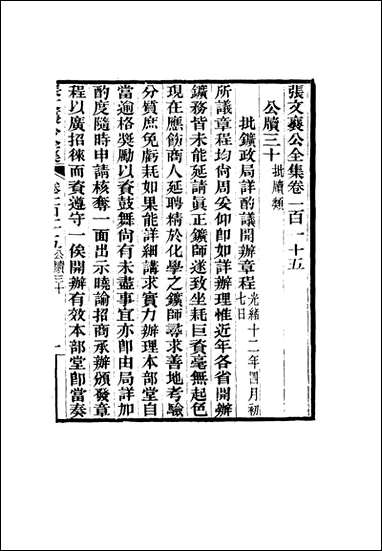 張文襄公全集卷一百一十五
公牘三十 批牘類
批鑛政局詳酌議開辦章程 光緒十二年四月初七日
所議章程均尚周妥仰卽如詳辦理惟近年各省開辦
鑛務皆未能延請眞正鑛師遂致坐耗巨貲毫無起色
現在應飭商人延聘精於化學之鑛師尋求善地考驗
分質庶免虧耗如果能詳細講求實力辦理本部堂自
當逾格奬勵以資鼓舞尙有未盡事宜亦卽由局詳加
酌度隨時申請核奪一面出示曉諭招商承辦頒發章
程以廣招徠而資遵守一俟開辦有效本部堂卽當奏
卷一百二十五 公牘三十
一